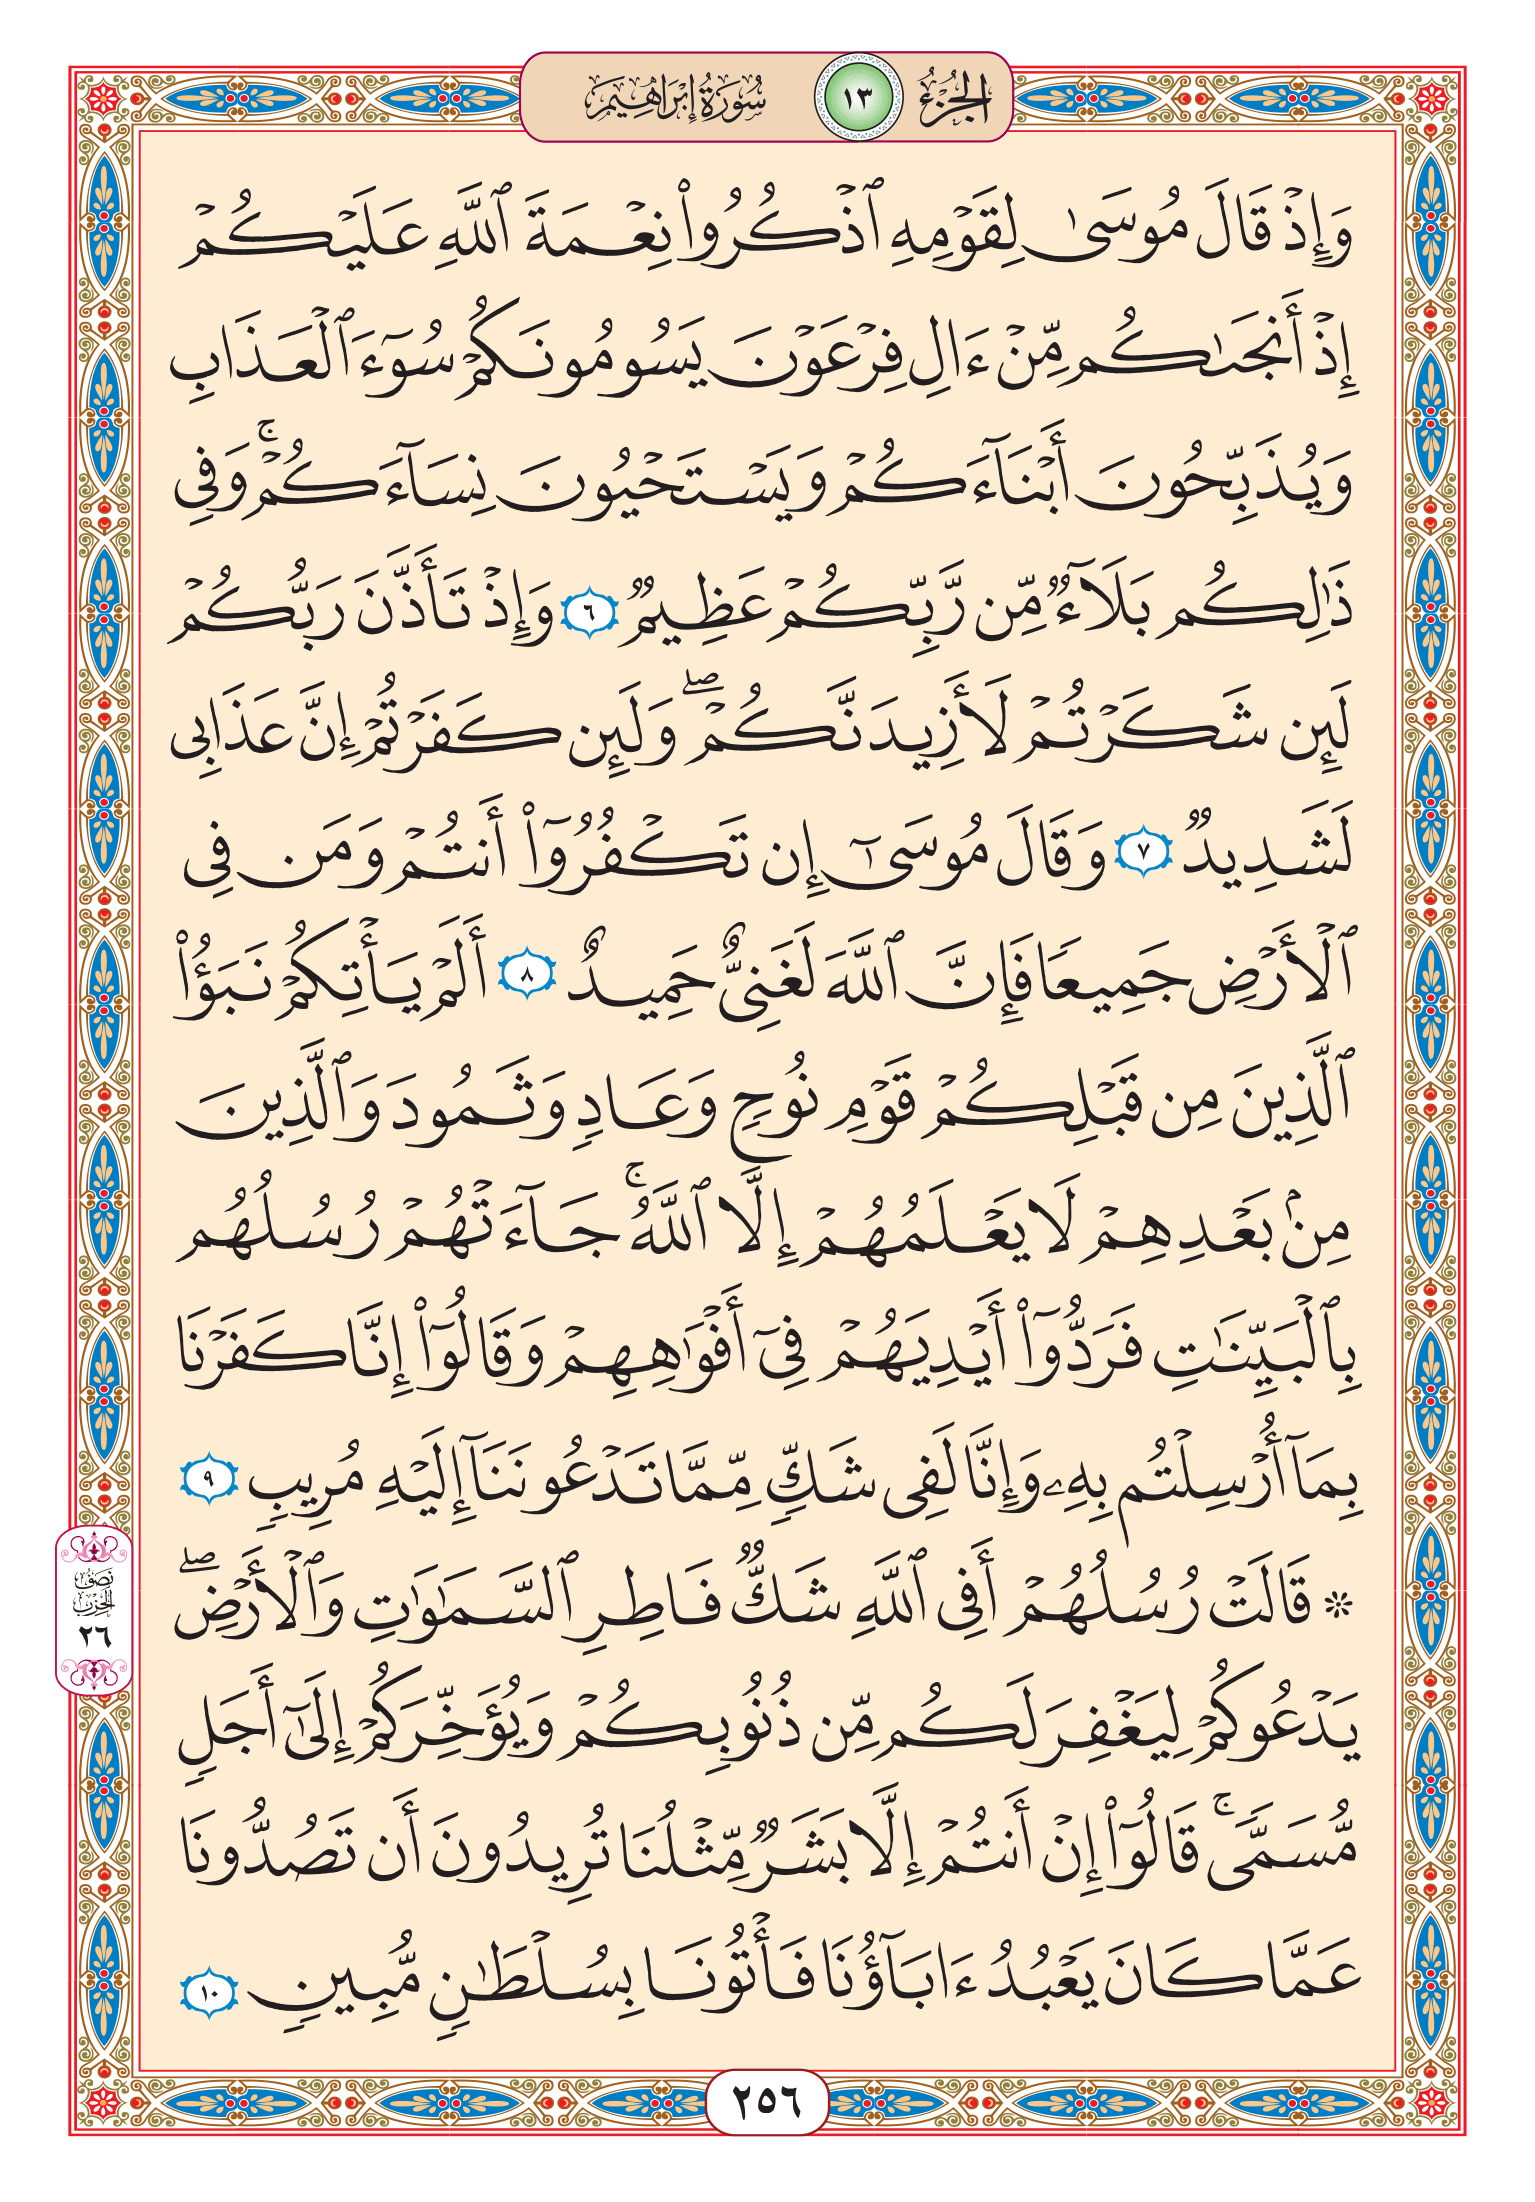 الجُزْءُ ١٣ سُورَةُ إِبْرَاهِيم
وَإِذۡ قَالَ مُوسَىٰ لِقَوۡمِهِ ٱذۡكُرُواْ نِعۡمَةَ ٱللَّهِ عَلَيۡكُمۡ
إِذۡ أَنجَىٰكُم مِّنۡ ءَالِ فِرۡعَوۡنَ يَسُومُونَكُمۡ سُوٓءَ ٱلۡعَذَابِ
وَيُذَبِّحُونَ أَبۡنَآءَكُمۡ وَيَسۡتَحۡيُونَ نِسَآءَكُمۡۚ وَفِي
ذَٰلِكُم بَلَآءٞ مِّن رَّبِّكُمۡ عَظِيمٞ ٦ وَإِذۡ تَأَذَّنَ رَبُّكُمۡ
لَئِن شَكَرۡتُمۡ لَأَزِيدَنَّكُمۡۖ وَلَئِن كَفَرۡتُمۡ إِنَّ عَذَابِي
لَشَدِيدٞ ٧ وَقَالَ مُوسَىٰٓ إِن تَكۡفُرُوٓاْ أَنتُمۡ وَمَن فِي
ٱلۡأَرۡضِ جَمِيعٗا فَإِنَّ ٱللَّهَ لَغَنِيٌّ حَمِيدٌ ٨ أَلَمۡ يَأۡتِكُمۡ نَبَؤُاْ
ٱلَّذِينَ مِن قَبۡلِكُمۡ قَوۡمِ نُوحٖ وَعَادٖ وَثَمُودَ وَٱلَّذِينَ
مِنۢ بَعۡدِهِمۡ لَا يَعۡلَمُهُمۡ إِلَّا ٱللَّهُۚ جَآءَتۡهُمۡ رُسُلُهُم
بِٱلۡبَيِّنَٰتِ فَرَدُّوٓاْ أَيۡدِيَهُمۡ فِيٓ أَفۡوَٰهِهِمۡ وَقَالُوٓاْ إِنَّا كَفَرۡنَا
بِمَآ أُرۡسِلۡتُم بِهِۦ وَإِنَّا لَفِي شَكّٖ مِّمَّا تَدۡعُونَنَآ إِلَيۡهِ مُرِيبٖ ٩
۞ قَالَتۡ رُسُلُهُمۡ أَفِي ٱللَّهِ شَكّٞ فَاطِرِ ٱلسَّمَٰوَٰتِ وَٱلۡأَرۡضِۖ
نِصْفُ
الحِزْبِ
٢٦
يَدۡعُوكُمۡ لِيَغۡفِرَ لَكُم مِّن ذُنُوبِكُمۡ وَيُؤَخِّرَكُمۡ إِلَىٰٓ أَجَلٖ
مُّسَمّٗىۚ قَالُوٓاْ إِنۡ أَنتُمۡ إِلَّا بَشَرٞ مِّثۡلُنَا تُرِيدُونَ أَن تَصُدُّونَا
عَمَّا كَانَ يَعۡبُدُ ءَابَآؤُنَا فَأۡتُونَا بِسُلۡطَٰنٖ مُّبِينٖ ١٠
٢٥٦